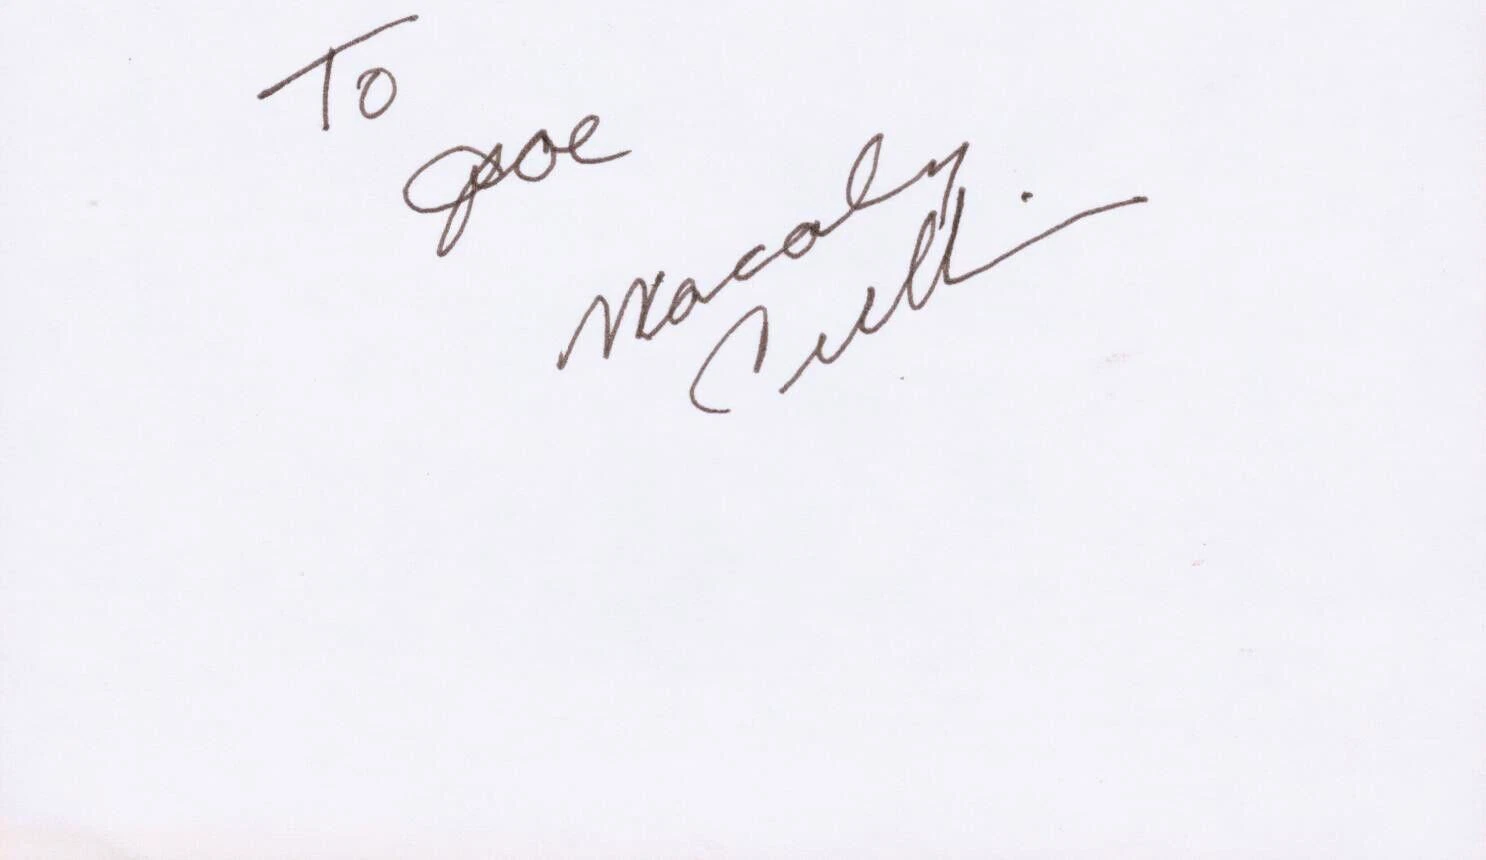 To
Joe
Macauly
Culkin